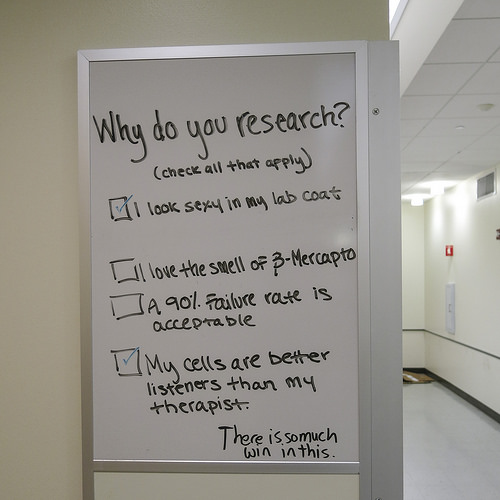 Why do you research?
(check all that apply)
I look sexy in my lab coat
I love the smell of β-Mercapto
A 90% Failure rate is
acceptable
My cells are better
listeners than my
therapist.
There is so much
win in this.